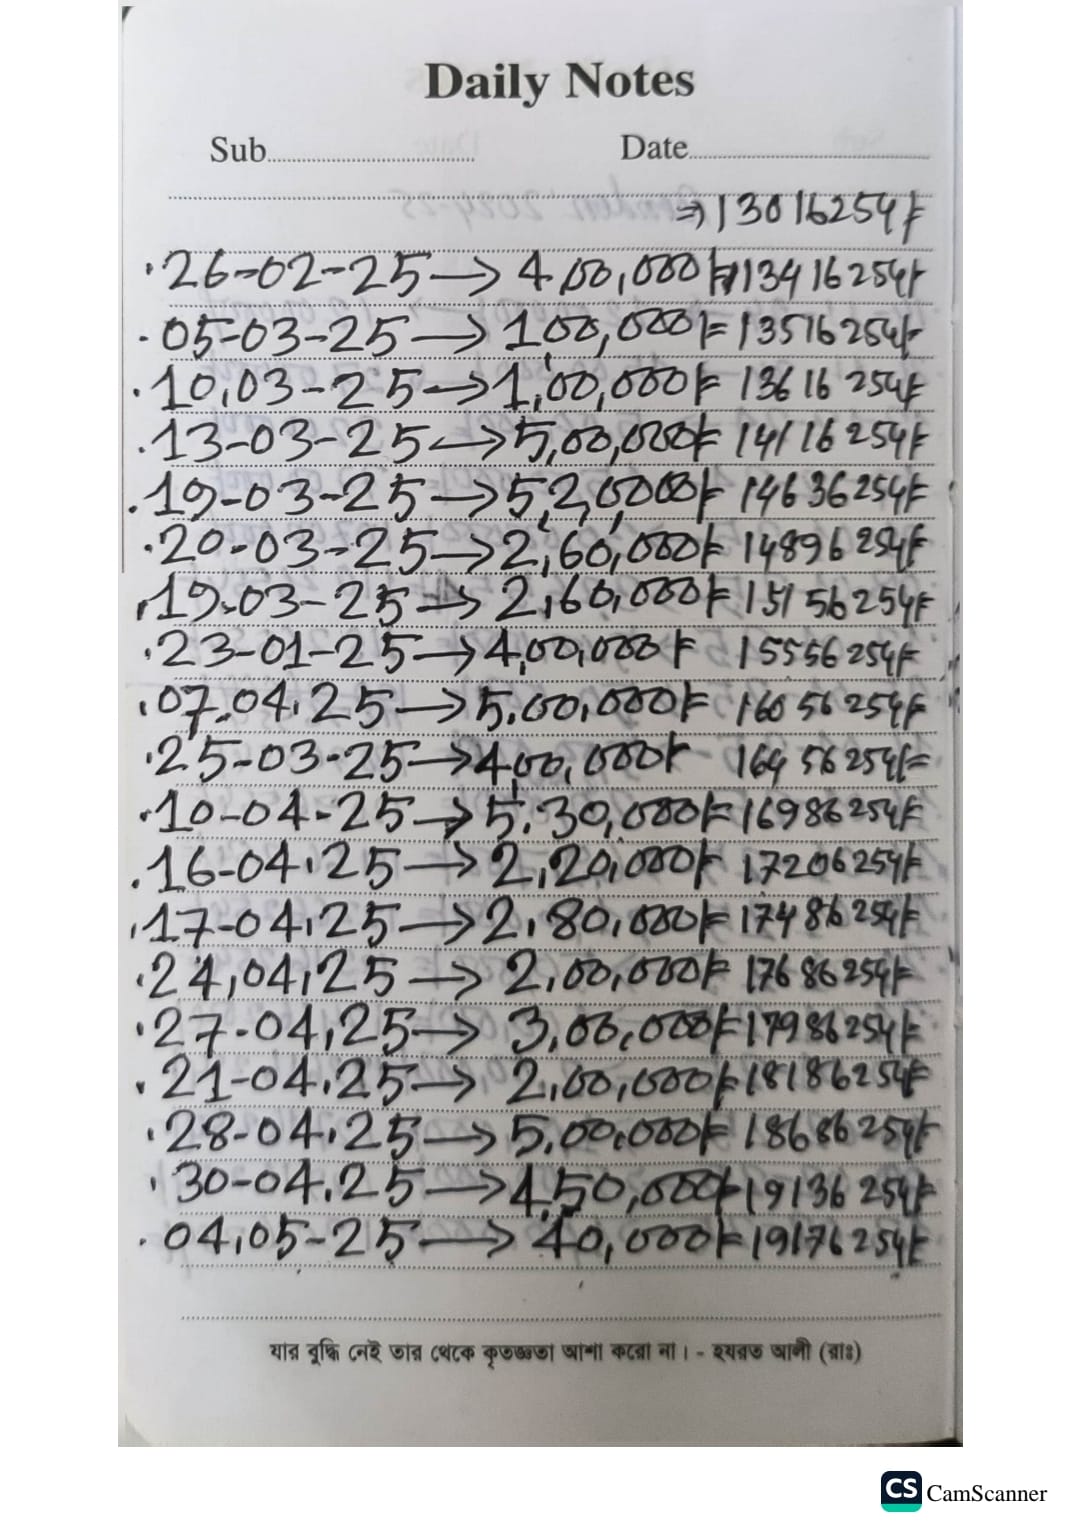 Daily Notes
Sub.......................... Date..............................
⇒ 13016254/=
· 26-02-25 → 4,00,000/= 13416254/=
· 05-03-25 → 100,000/= 13516254/=
· 10,03-25 → 1,00,000/= 13616254/=
· 13-03-25 → 5,00,000/= 14116254/=
· 19-03-25 → 5,20,000/= 14636254/=
· 20-03-25 → 2,60,000/= 14896254/=
· 19-03-25 → 2,60,000/= 15156254/=
· 23-01-25 → 4,00,000/= 15556254/=
· 07.04.25 → 5,00,000/= 16056254/=
· 25-03-25 → 4,00,000/= 16456254/=
· 10-04-25 → 5,30,000/= 16986254/=
· 16-04.25 → 2,20,000/= 17206254/=
· 17-04.25 → 2,80,000/= 17486254/=
· 24,04,25 → 2,00,000/= 17686254/=
· 27-04,25 → 3,00,000/= 17986254/=
· 21-04.25 → 2,00,000/= 18186254/=
· 28-04.25 → 5,00,000/= 18686254/=
· 30-04.25 → 4,50,000/= 19136254/=
· 04,05-25 → 40,000/= 19176254/=
যার বুদ্ধি নেই তার থেকে কৃতজ্ঞতা আশা করো না। - হযরত আলী (রাঃ)
CS CamScanner